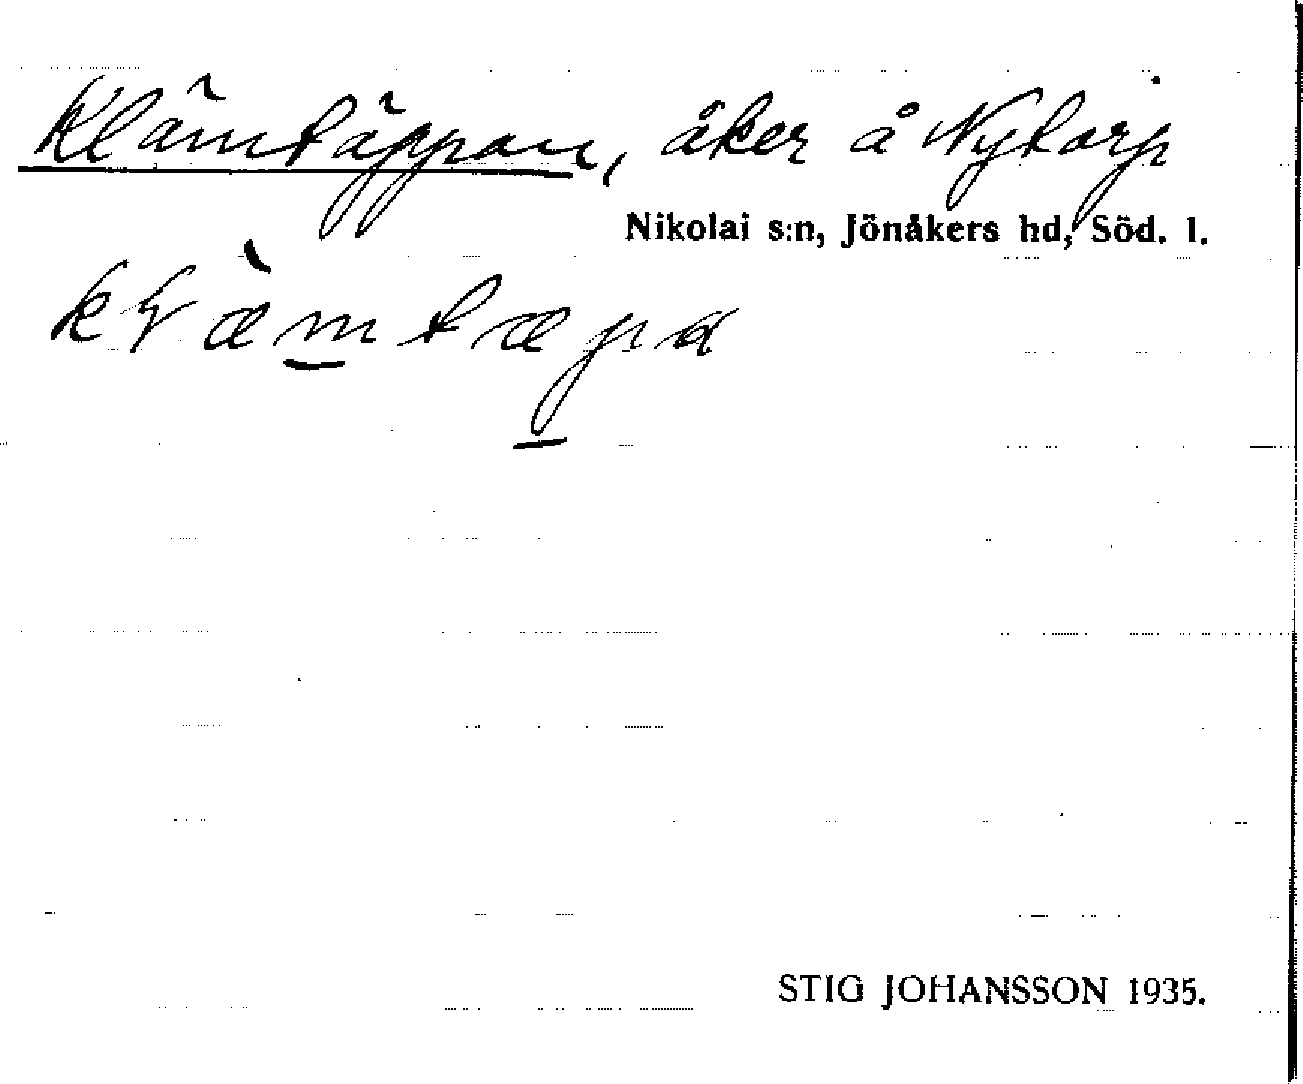 Klämtäppan, åker å Nytorp
Nikolai s:n, Jönåkers hd, Söd. l.
STIG JOHANSSON 1935.